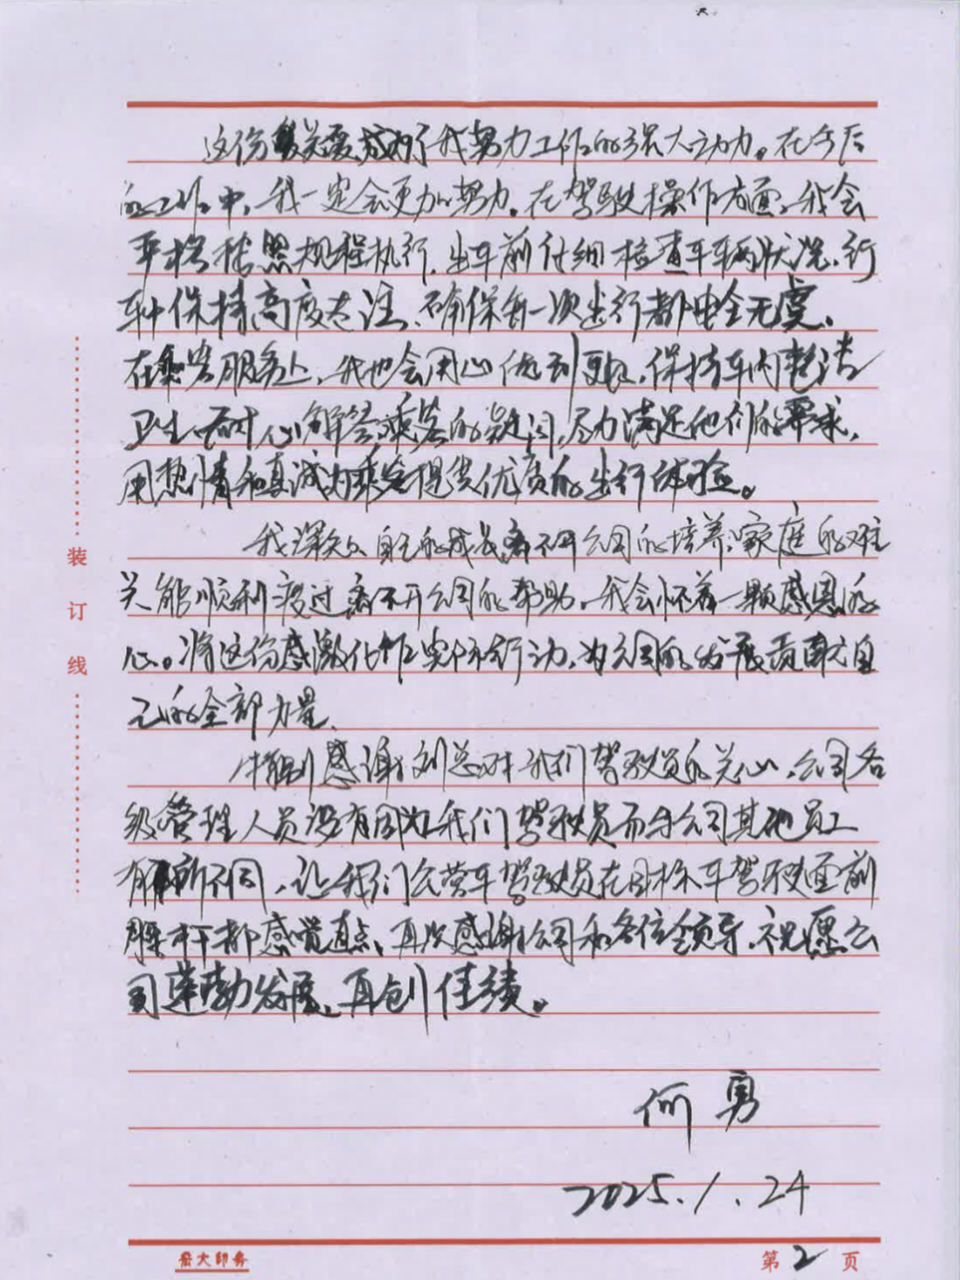 这份关爱成为了我努力工作的强大动力。在今后
的工作中，我一定会更加努力。在驾驶操作方面，我会
严格按照规程执行，出车前仔细检查车辆状况，行
车中保持高度专注，确保每一次出行都安全无虞。
在乘客服务上，我也会用心做到更好，保持车内整洁
卫生，耐心解答乘客的疑问，尽力满足他们的需求，
用热情和真诚为乘客提供优质的出行体验。
我深知自己的成长离不开公司的培养，家庭的难
关能顺利渡过离不开公司的帮助。我会怀着一颗感恩的
心。将这份感激化作实际行动，为公司的发展贡献自
己的全部力量。
特别感谢刘总对我们驾驶员的关心，公司各
级管理人员没有因为我们驾驶员而与公司其他员工
有所不同，让我们公营车驾驶员在目标车驾驶面前
腰杆都感觉直点，再次感谢公司和各位领导，祝愿公
司蓬勃发展，再创佳绩。
何勇
2025.1.24
装订线
大印务
第2页